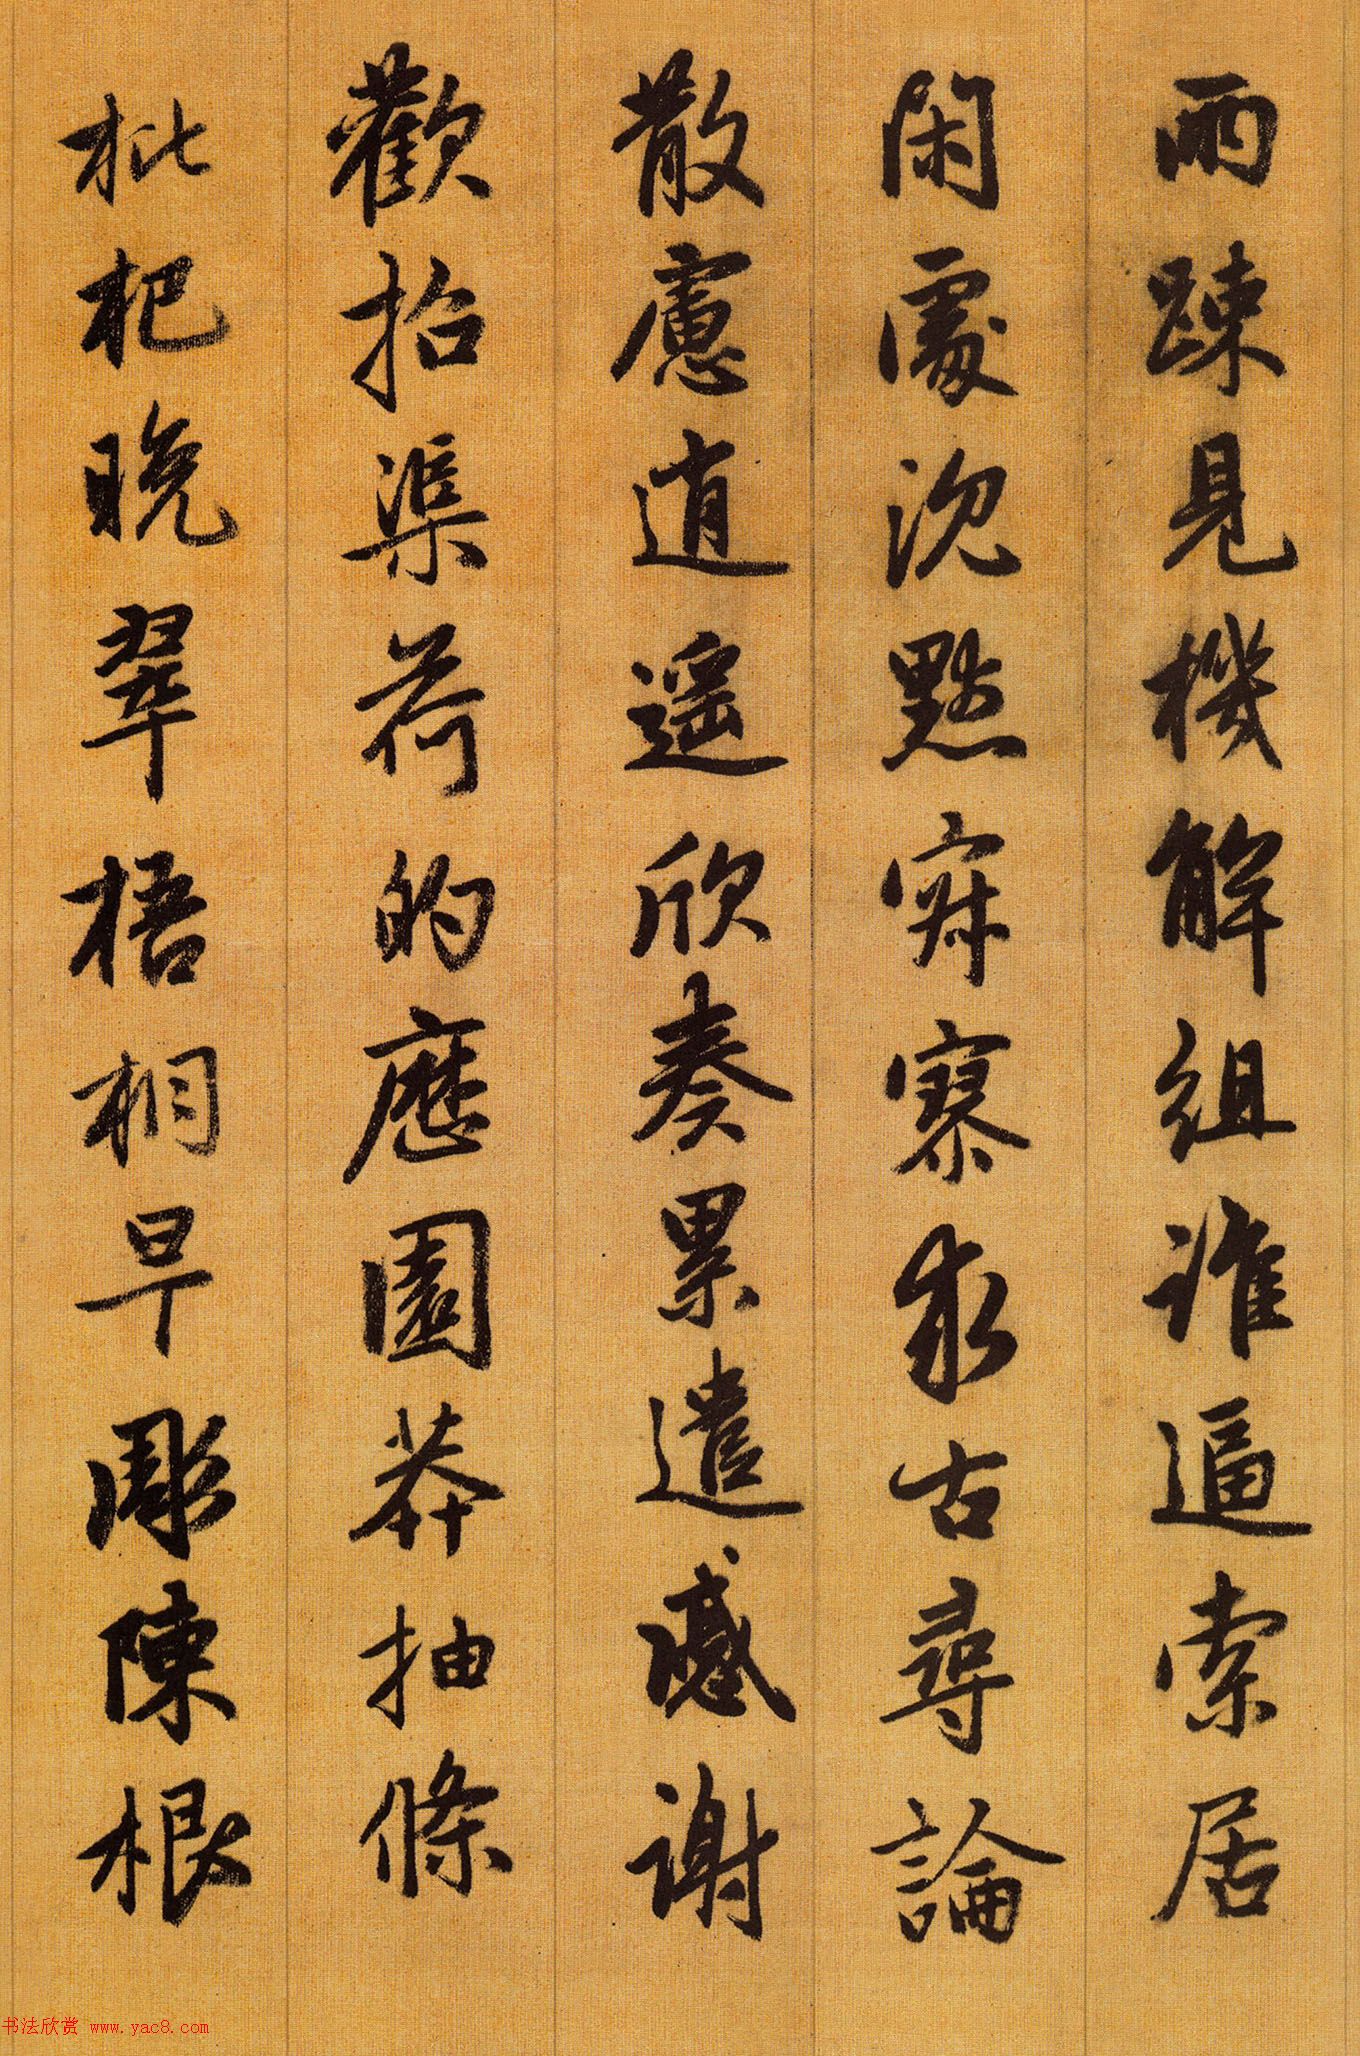 兩踈見機解組誰逼索居
閑處沉黙寂寥求古尋論
散慮逍遥欣奏累遣慼謝
歡招渠荷的歷園莽抽條
枇杷晚翠梧桐早彫陳根
书法欣赏 www.yac8.com